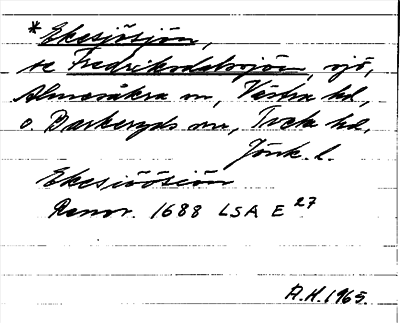 *Ekesjösjön,
se Fredriksdalssjön, sjö,
Almesåkra sn, Västra hd,
o. Barkeryds sn, Tveta hd,
Jönk. l.
Ekesiöösiön
Renov. 1688 LSA E 27
A.H. 1965.